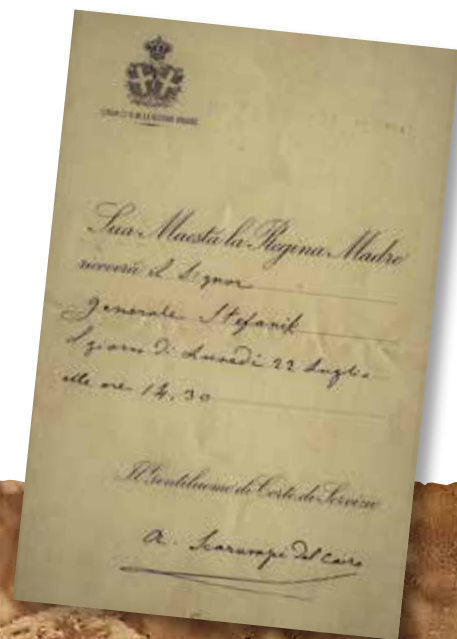 Sua Maestà la Regina Madre
riceverà il Signor
Generale Stefanik
il giorno di Lunedì 22 Luglio
alle ore 14,30
Il Gentiluomo di Corte di Servizio
A. Scarampi del Cairo